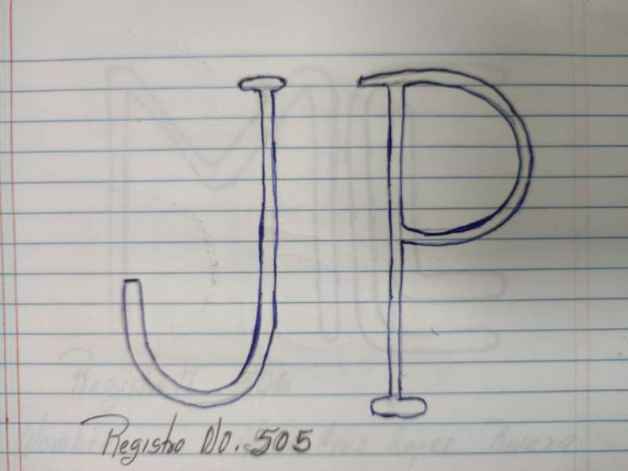 JP
Registro No. 505